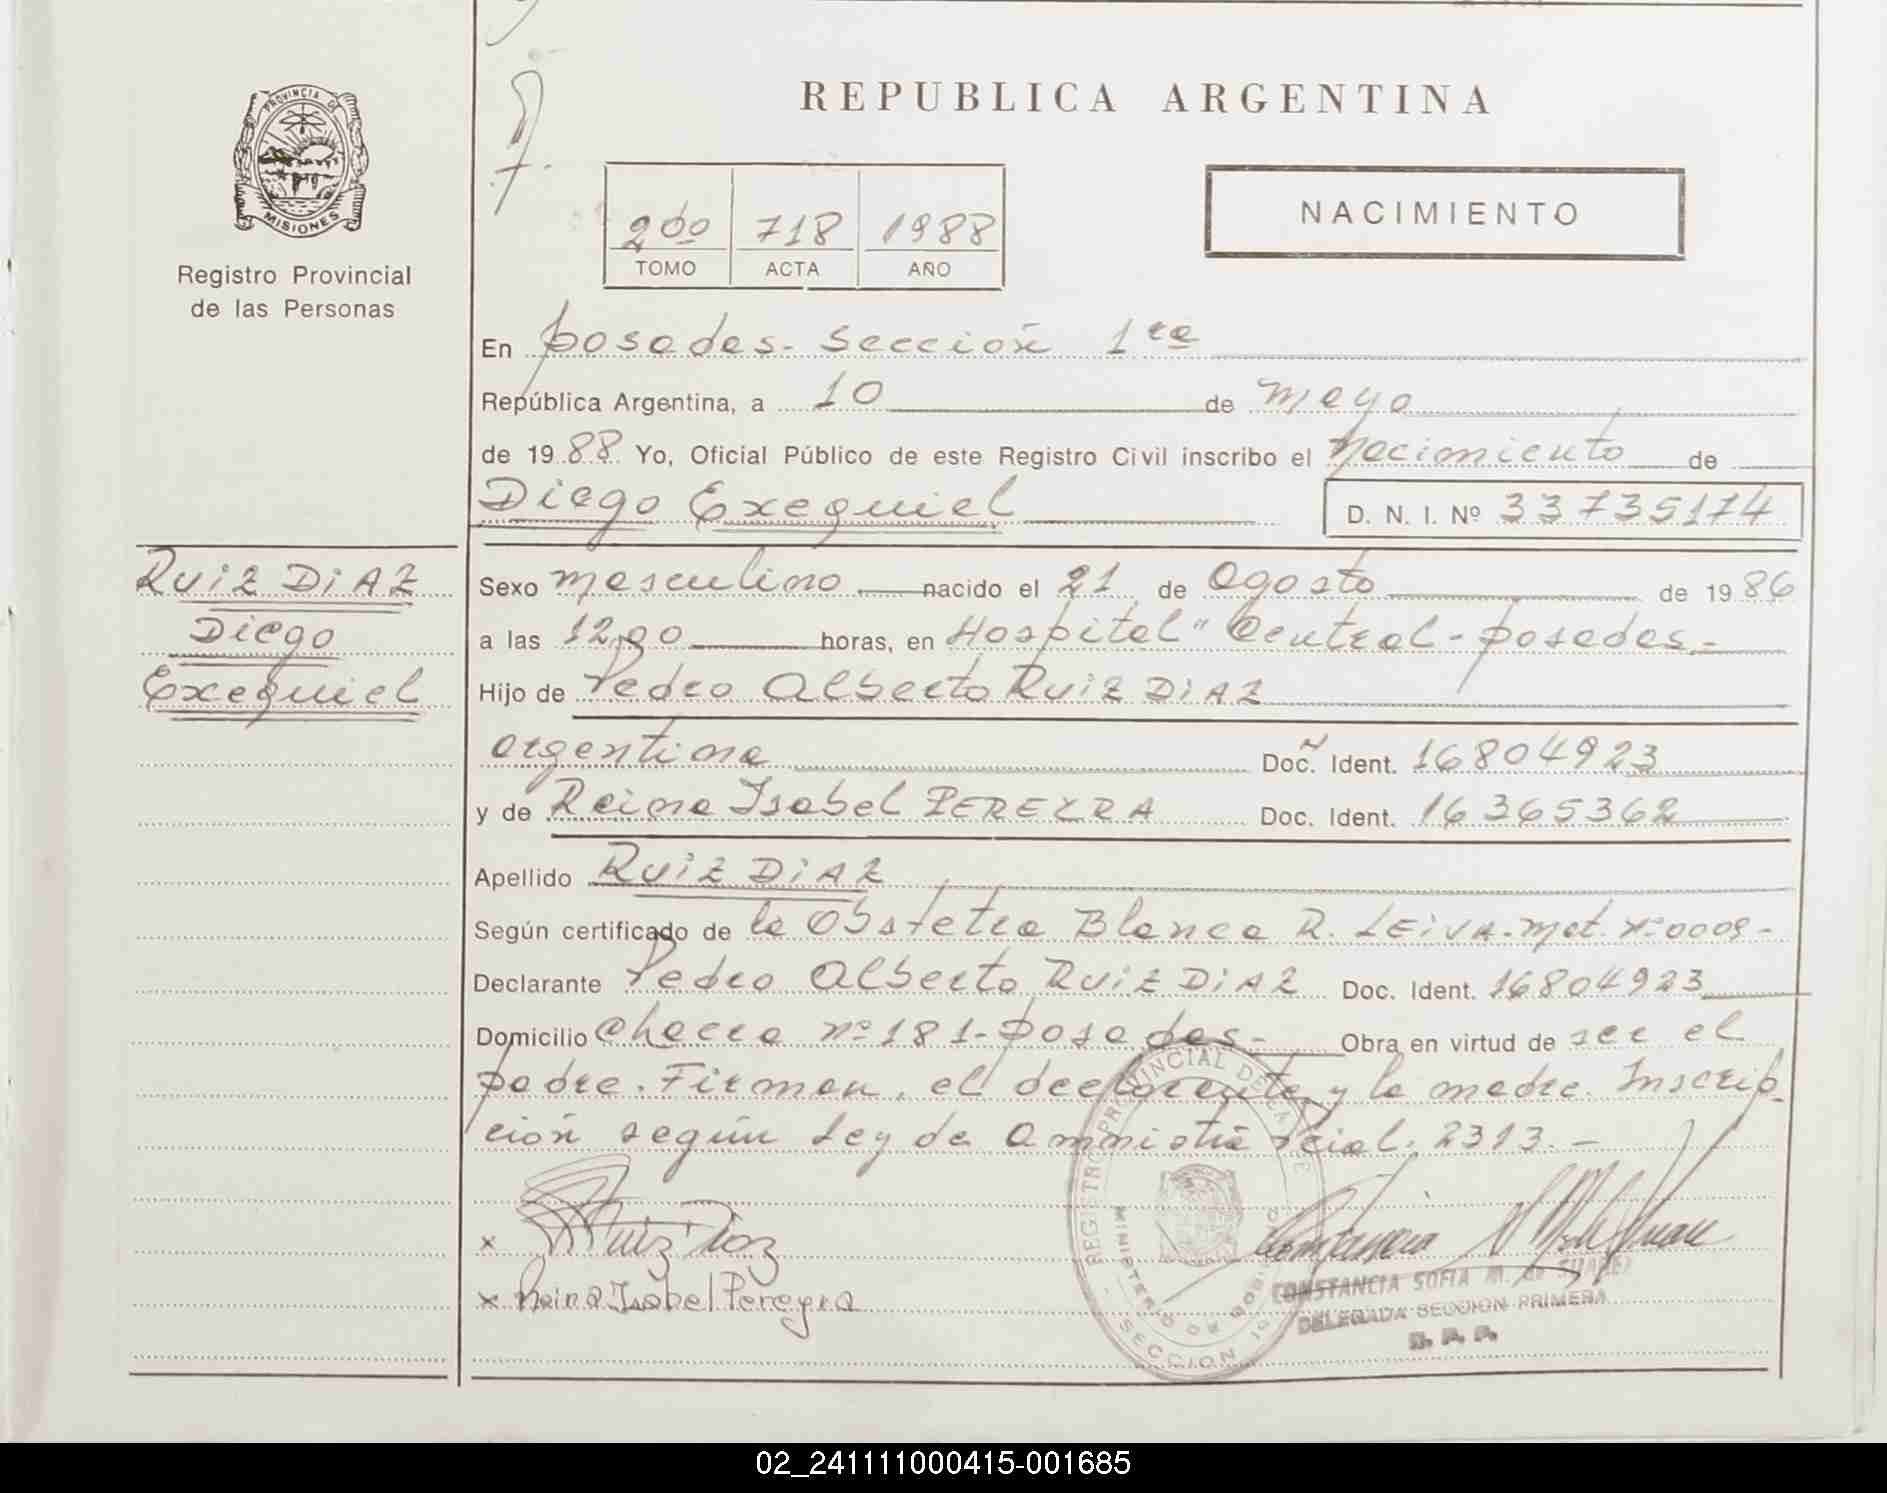 REPUBLICA ARGENTINA
PROVINCIA DE
MISIONES
Registro Provincial
de las Personas
2do 718 1988
TOMO ACTA AÑO
NACIMIENTO
En Posadas - Sección 1ra
República Argentina, a 10 de mayo
de 1988 Yo, Oficial Público de este Registro Civil inscribo el Nacimiento de
Diego Exequiel D. N. I. Nº 33735174
RUIZ DIAZ
Diego
Exequiel
Sexo masculino nacido el 21 de Agosto de 1986
a las 12,00 horas, en Hospital "Central - Posadas.-
Hijo de Pedro Alberto RUIZ DIAZ
argentina Doc. Ident. 16804923
y de Reina Isabel PEREYRA Doc. Ident. 16365362
Apellido RUIZ DIAZ
Según certificado de la Obstetra Blanca R. LEIVA - Mat. Nº 0009 -
Declarante Pedro Alberto RUIZ DIAZ Doc. Ident. 16804923
Domicilio Chacra nº 181 - Posadas - Obra en virtud de ser el
padre. Firman, el declarante y la madre. Inscrip
ción según Ley de Amnistía 2313. -
x Ruiz Diaz
x Reina Isabel Pereyra
REGISTRO PROVINCIAL DE LAS
MINISTERIO DE GOBIERNO
SECCION 1
CONSTANCIA SOFIA M. de SUAREZ
DELEGADA SECCION PRIMERA
02_241111000415-001685